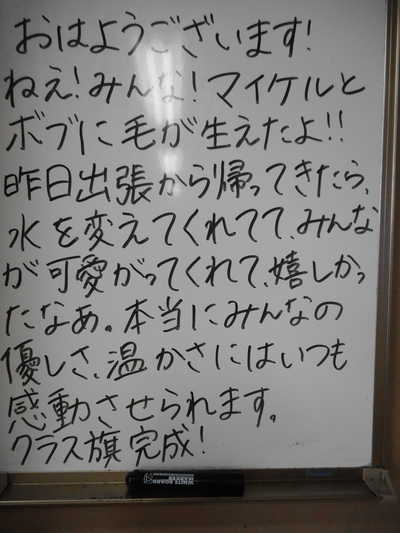 おはようございます!
ねえ!みんな!マイケルと
ボブに毛が生えたよ!!
昨日出張から帰ってきたら、
水を変えてくれてて、みんな
が可愛がってくれて、嬉しかっ
たなあ。本当にみんなの
優しさ、温かさにはいつも
感動させられます。
クラス旗完成!
WHITE BOARD
MARKER